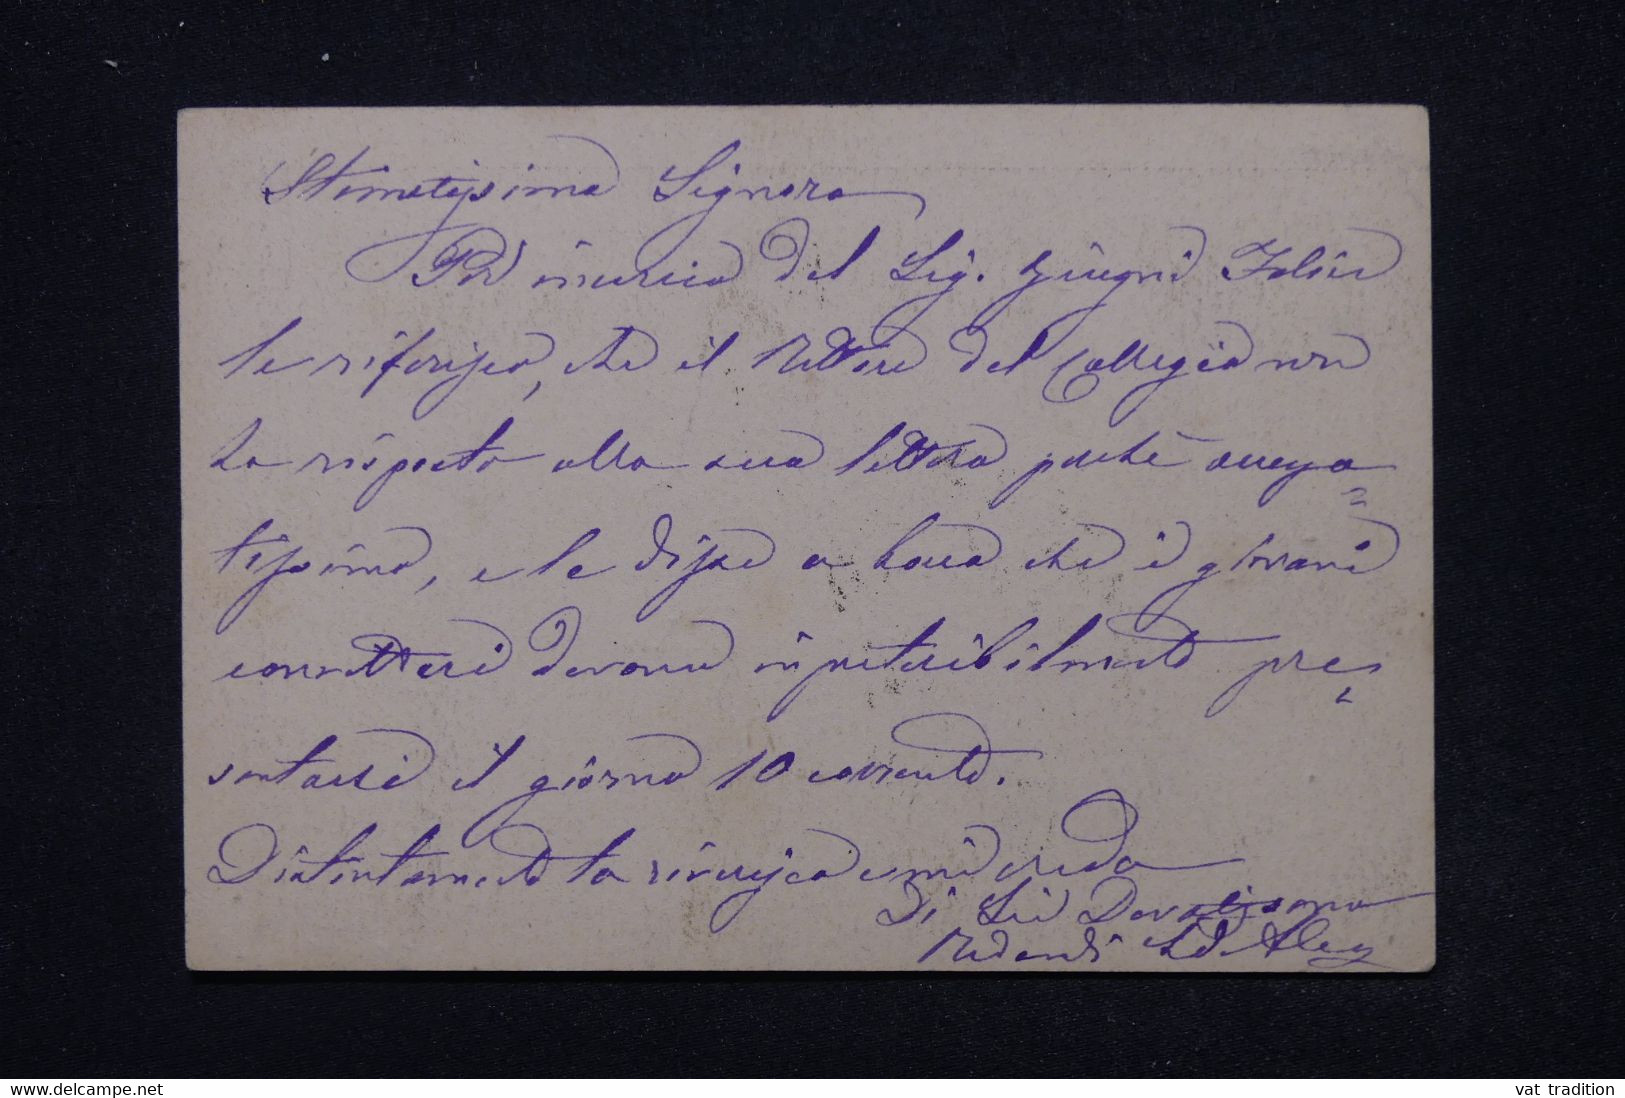 Stimatissima Signora
Per incarico del Sig. Giugni Felice
le riferisco, che il Rettore del Collegio non
ha risposto alla sua lettera perché occupa=
tissimo, e le disse a bocca che i giovani
convittori devono imperteribilmente pre-
sentarsi il giorno 10 corrente.
Distintamente la riverisco e mi creda
Di Lei Devotissimo
delcampe.net
vat tradition